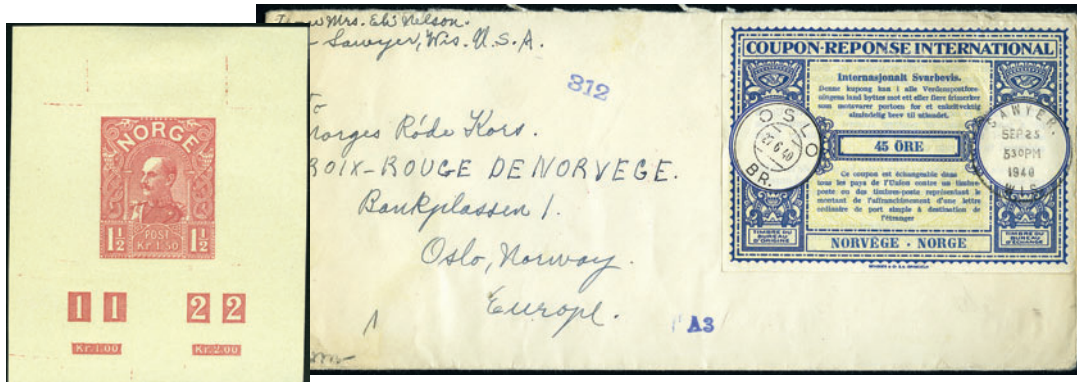 NORGE
1½ POST 1½
Kr. 1.50
1 1 2 2
Kr. 1.00 Kr. 2.00
Mrs. Eli Nelson.
Sawyer, Wis. U.S.A.
812
Norges Röde Kors.
ROIX-ROUGE DE NORVEGE.
Bankplassen 1.
Oslo, Norway.
Europe.
A3
COUPON-REPONSE INTERNATIONAL
Internasjonalt Svarbevis.
Denne kupong kan i alle Verdenspostfore-
ningens land byttes mot ett eller flere frimerker
som motsvarer portoen for et enkeltvektig
almindelig brev til utlandet.
45 ÖRE
Ce coupon est échangeable dans
tous les pays de l'Union contre un timbre-
poste ou des timbres-poste représentant le
montant de l'affranchissement d'une lettre
ordinaire de port simple à destination de
l'étranger
TIMBRE DU
BUREAU
D'ORIGINE
NORVÈGE - NORGE
TIMBRE DU
BUREAU
D'ÉCHANGE
OSLO
27 6 40
BR.
SAWYER,
SEP 25
530PM
1940
WIS